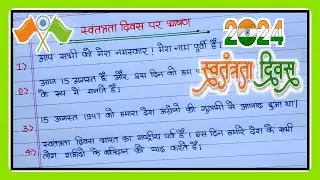 स्वतंत्रता दिवस पर भाषण
2024
स्वतंत्रता दिवस
1) आप सभी को मेरा नमस्कार! मेरा नाम पूर्वी है।
2) आज 15 अगस्त है और इस दिन को हम
के रूप में मनाते हैं।
3) 15 अगस्त 1947 को हमारा देश अंग्रेजों की गुलामी से आजाद हुआ था।
4) स्वतंत्रता दिवस भारत का राष्ट्रीय पर्व है। इस दिन हमारे देश के सभी
लोग शहीदों के बलिदान को याद करते हैं।